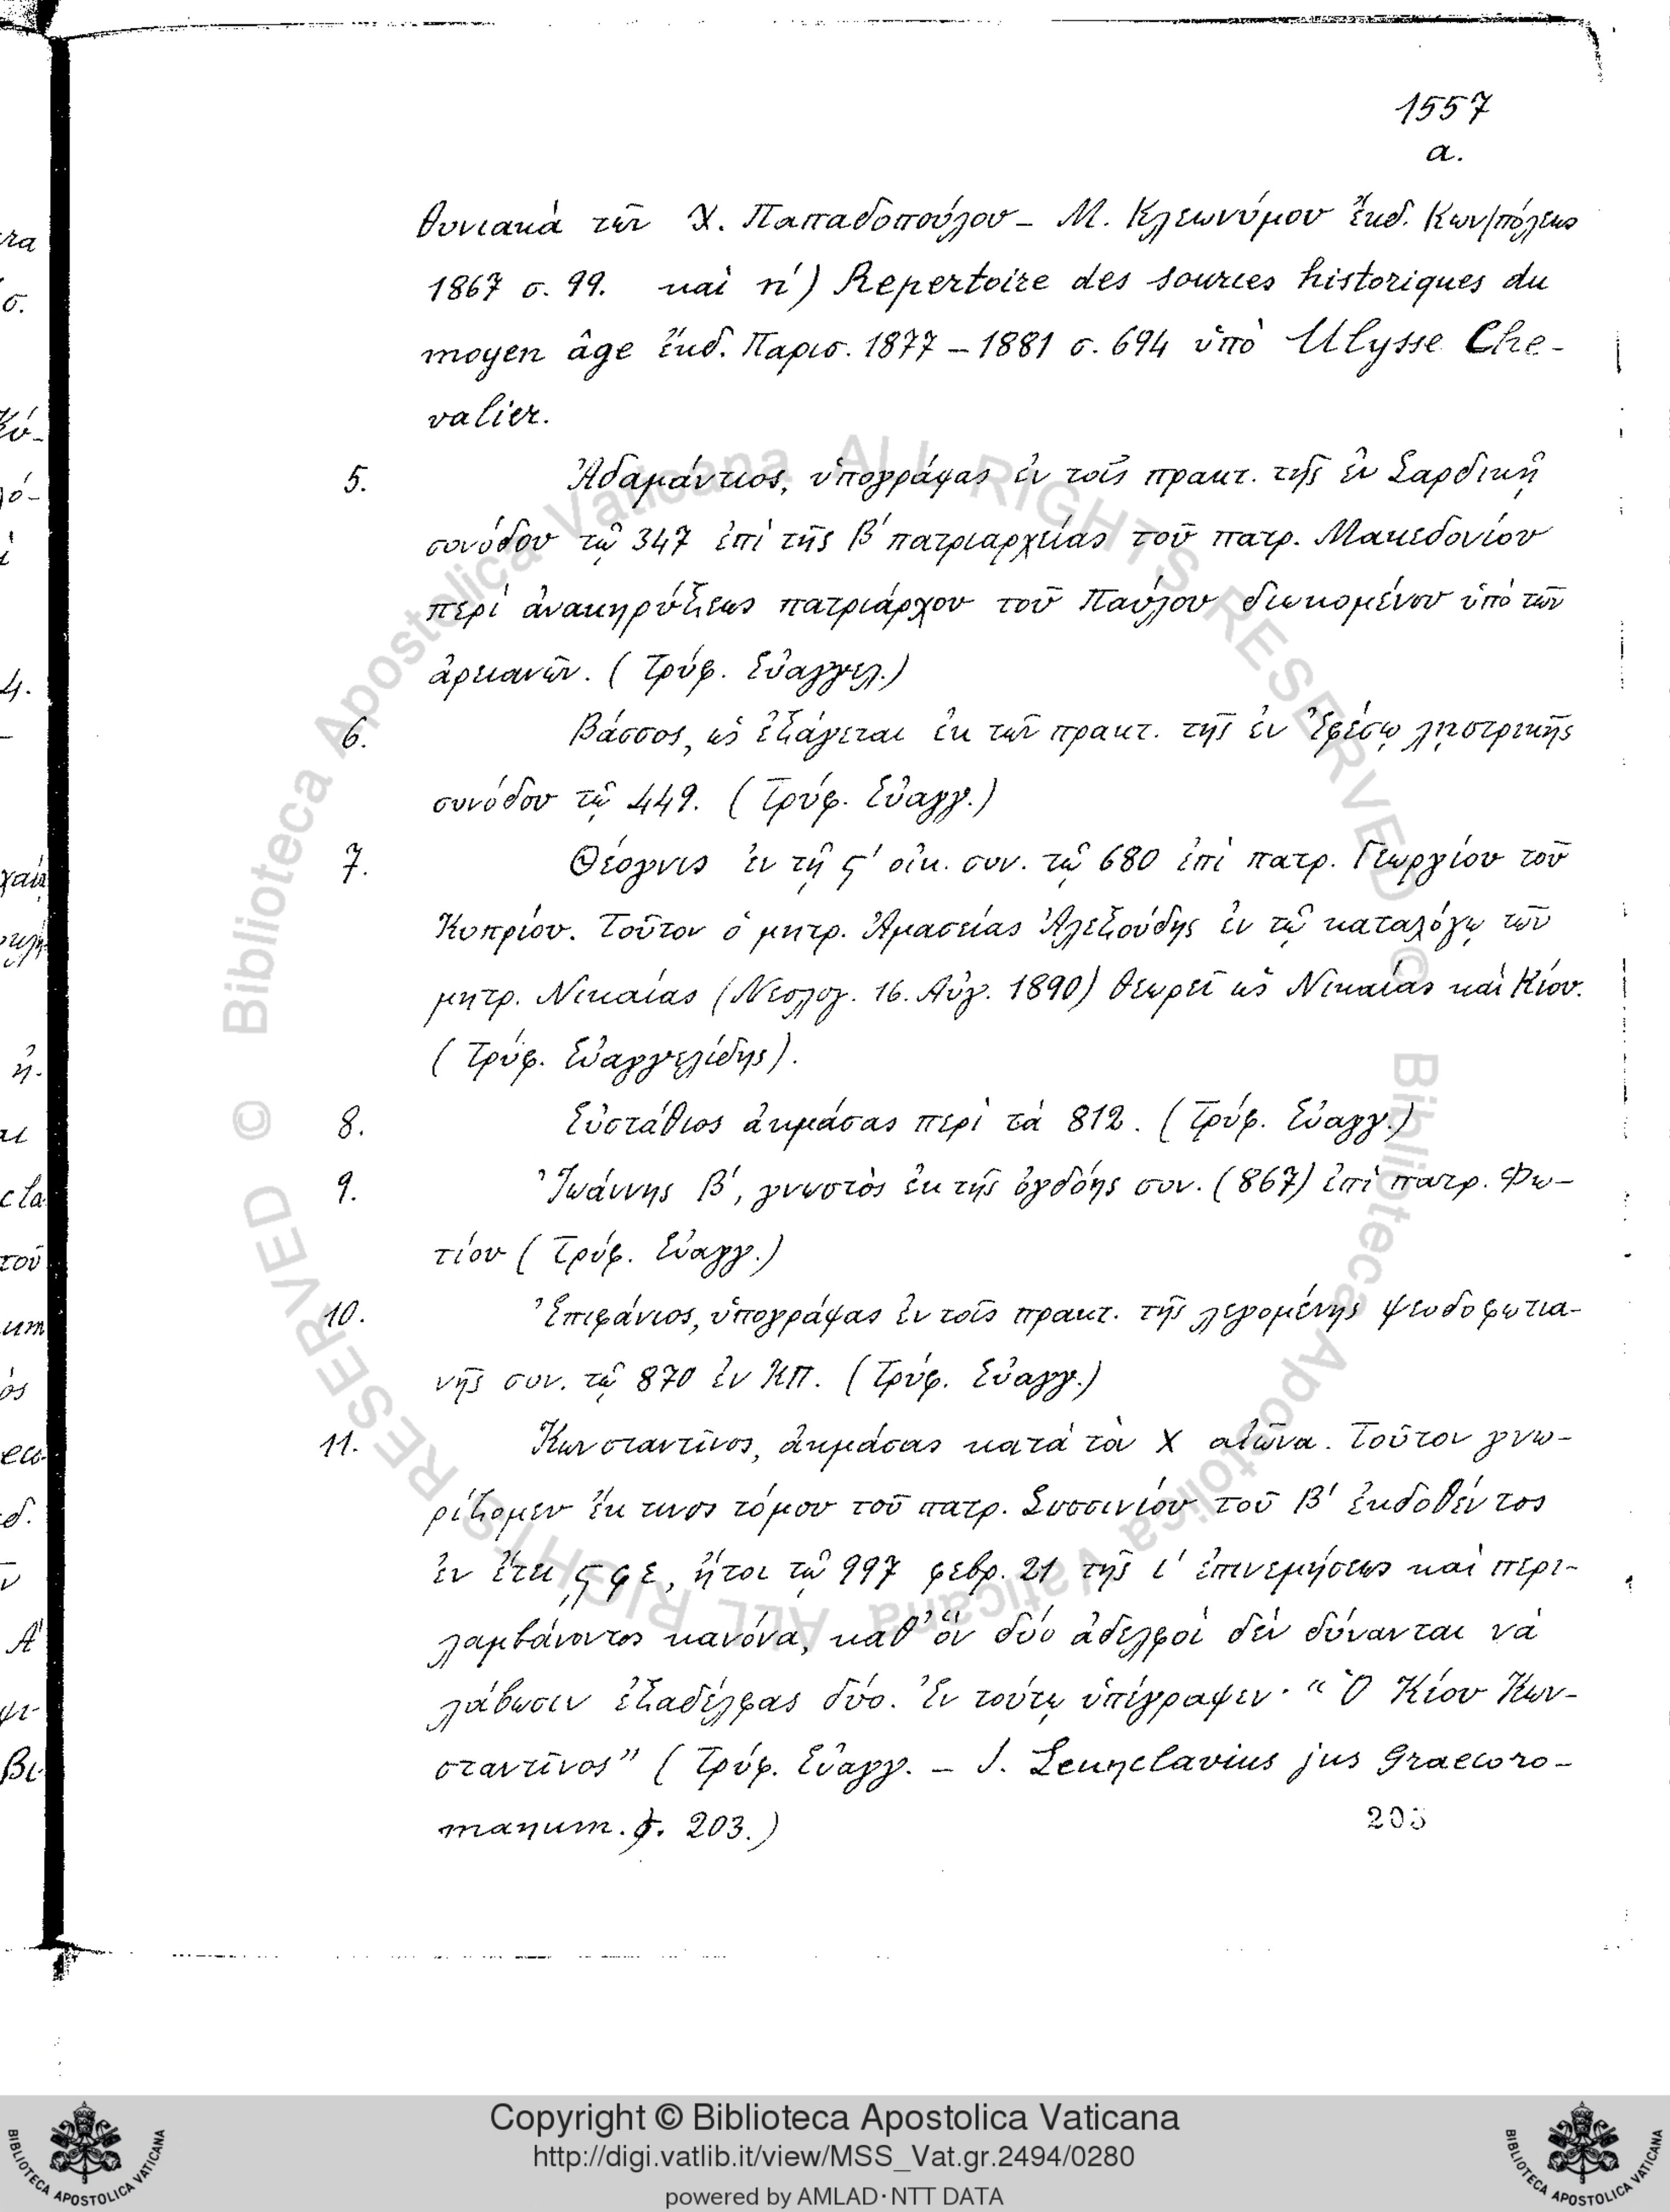 1557
α.
θυνιακὰ τῶν Χ. Παπαδοπούλου – Μ. Κλεωνύμου ἔκδ. Κων/πόλεως
1867 σ. 99. καὶ η΄) Repertoire des sources historiques du
moyen âge ἔκδ. Παρισ. 1877 – 1881 σ. 694 ὑπὸ Ulysse Che-
valier.
5. Ἀδαμάντιος, ὑπογράψας ἐν τοῖς πρακτ. τῆς ἐν Σαρδικῇ
συνόδου τῷ 347 ἐπὶ τῆς β΄ πατριαρχείας τοῦ πατρ. Μακεδονίου
περὶ ἀνακηρύξεως πατριάρχου τοῦ Παύλου διωκομένου ὑπὸ τῶν
ἀρειανῶν. (Τρύφ. Εὐαγγελ.)
6. Βάσσος, ὡς ἐξάγεται ἐκ τῶν πρακτ. τῆς ἐν Ἐφέσῳ λῃστρικῆς
συνόδου τῷ 449. (Τρύφ. Εὐαγγ.)
7. Θέογνις ἐν τῇ ϛ΄ οἰκ. συν. τῷ 680 ἐπὶ πατρ. Γεωργίου τοῦ
Κυπρίου. Τοῦτον ὁ μητρ. Ἀμασείας Ἀλεξούδης ἐν τῷ καταλόγῳ τῶν
μητρ. Νικαίας (Νεολογ. 16. Αὐγ. 1890) θεωρεῖ ὡς Νικαίας καὶ Κίου.
(Τρύφ. Εὐαγγελίδης).
8. Εὐστάθιος ἀκμάσας περὶ τὰ 812. (Τρύφ. Εὐαγγ.)
9. Ἰωάννης Β΄, γνωστὸς ἐκ τῆς ὀγδόης συν. (867) ἐπὶ πατρ. Φω-
τίου (Τρύφ. Εὐαγγ.)
10. Ἐπιφάνιος, ὑπογράψας ἐν τοῖς πρακτ. τῆς λεγομένης ψευδοφωτια-
νῆς συν. τῷ 870 ἐν ΚΠ. (Τρύφ. Εὐαγγ.)
11. Κωνσταντῖνος, ἀκμάσας κατὰ τὸν Χ αἰῶνα. Τοῦτον γνω-
ρίζομεν ἔκ τινος τόμου τοῦ πατρ. Σισσινίου τοῦ Β΄ ἐκδοθέντος
ἐν ἔτει ͵ϛφε, ἤτοι τῷ 997 φεβρ. 21 τῆς ι΄ ἐπινεμήσεως καὶ περι-
λαμβάνοντος κανόνα, καθ᾽ ὃν δύο ἀδελφοὶ δὲν δύνανται νὰ
λάβωσιν ἐξαδέλφας δύο. Ἐν τούτῳ ὑπέγραψεν· "Ὁ Κίου Κων-
σταντῖνος" (Τρύφ. Εὐαγγ. – J. Leunclavius jus Graecoro-
manum. σ. 203.)
205
© Biblioteca Apostolica Vaticana ALL RIGHTS RESERVED
© Biblioteca Apostolica Vaticana ALL RIGHTS RESERVED
Copyright © Biblioteca Apostolica Vaticana
http://digi.vatlib.it/view/MSS_Vat.gr.2494/0280
powered by AMLAD·NTT DATA
BIBLIOTECA APOSTOLICA VATICANA
BIBLIOTECA APOSTOLICA VATICANA